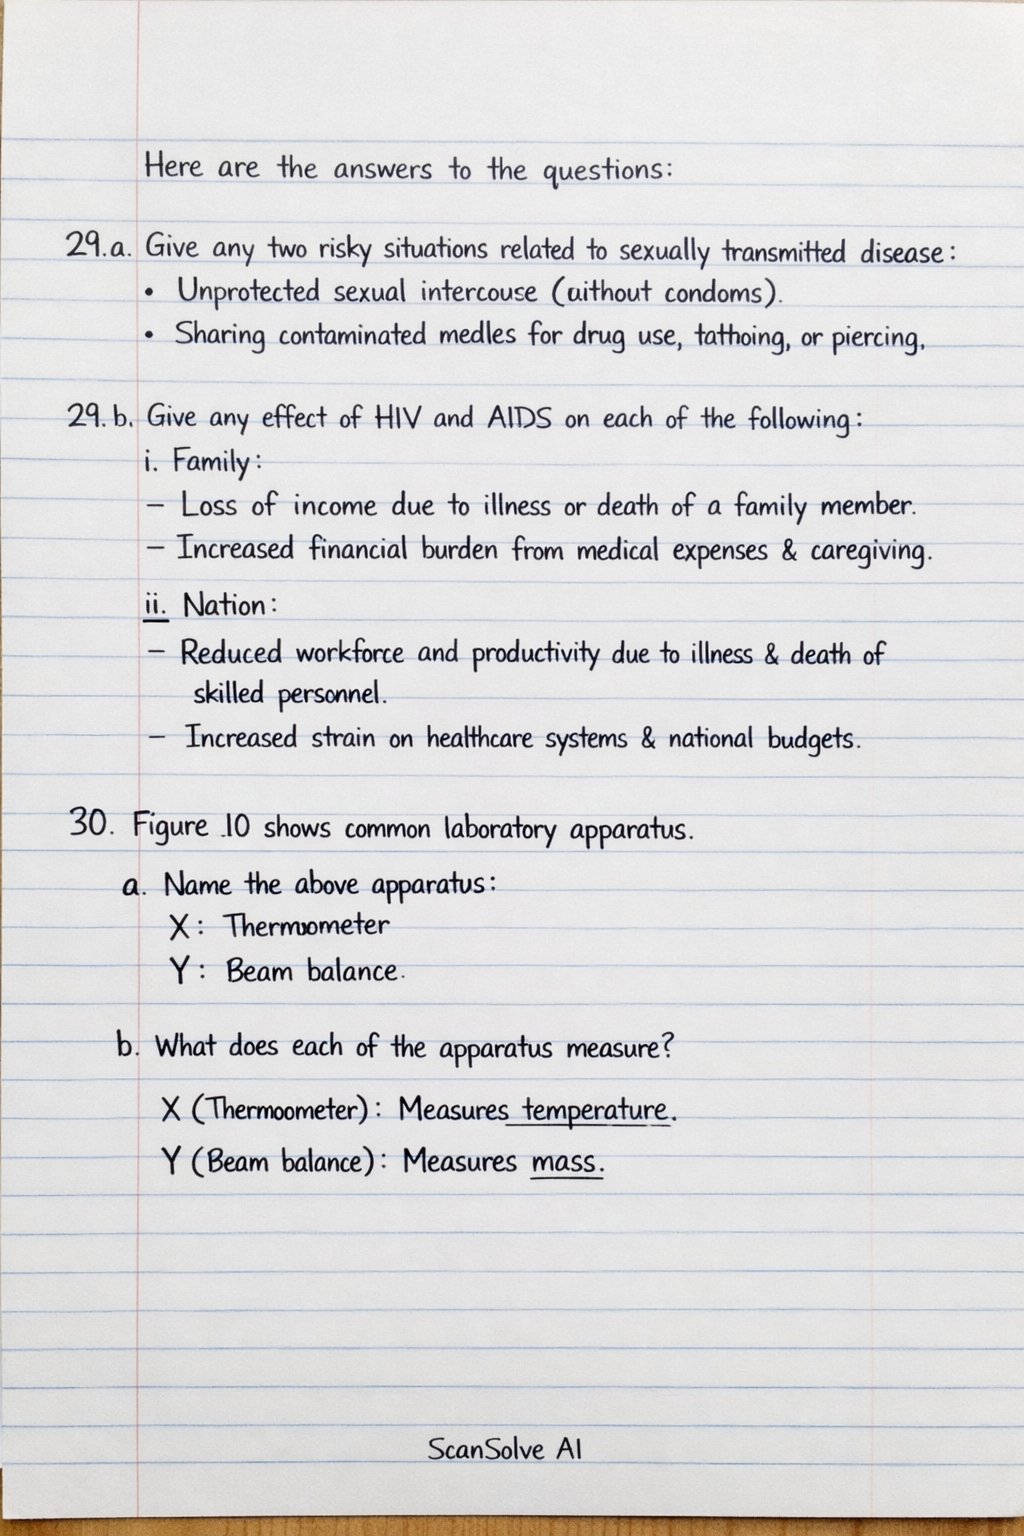 Here are the answers to the questions:
29.a. Give any two risky situations related to sexually transmitted disease:
• Unprotected sexual intercouse (aithout condoms).
• Sharing contaminated medles for drug use, tathoing, or piercing,
29. b. Give any effect of HIV and AIDS on each of the following:
i. Family:
– Loss of income due to illness or death of a family member.
– Increased financial burden from medical expenses & caregiving.
ii. Nation:
– Reduced workforce and productivity due to illness & death of
skilled personnel.
– Increased strain on healthcare systems & national budgets.
30. Figure .10 shows common laboratory apparatus.
a. Name the above apparatus:
X: Thermometer
Y: Beam balance.
b. What does each of the apparatus measure?
X (Thermoometer): Measures temperature.
Y (Beam balance): Measures mass.
ScanSolve AI